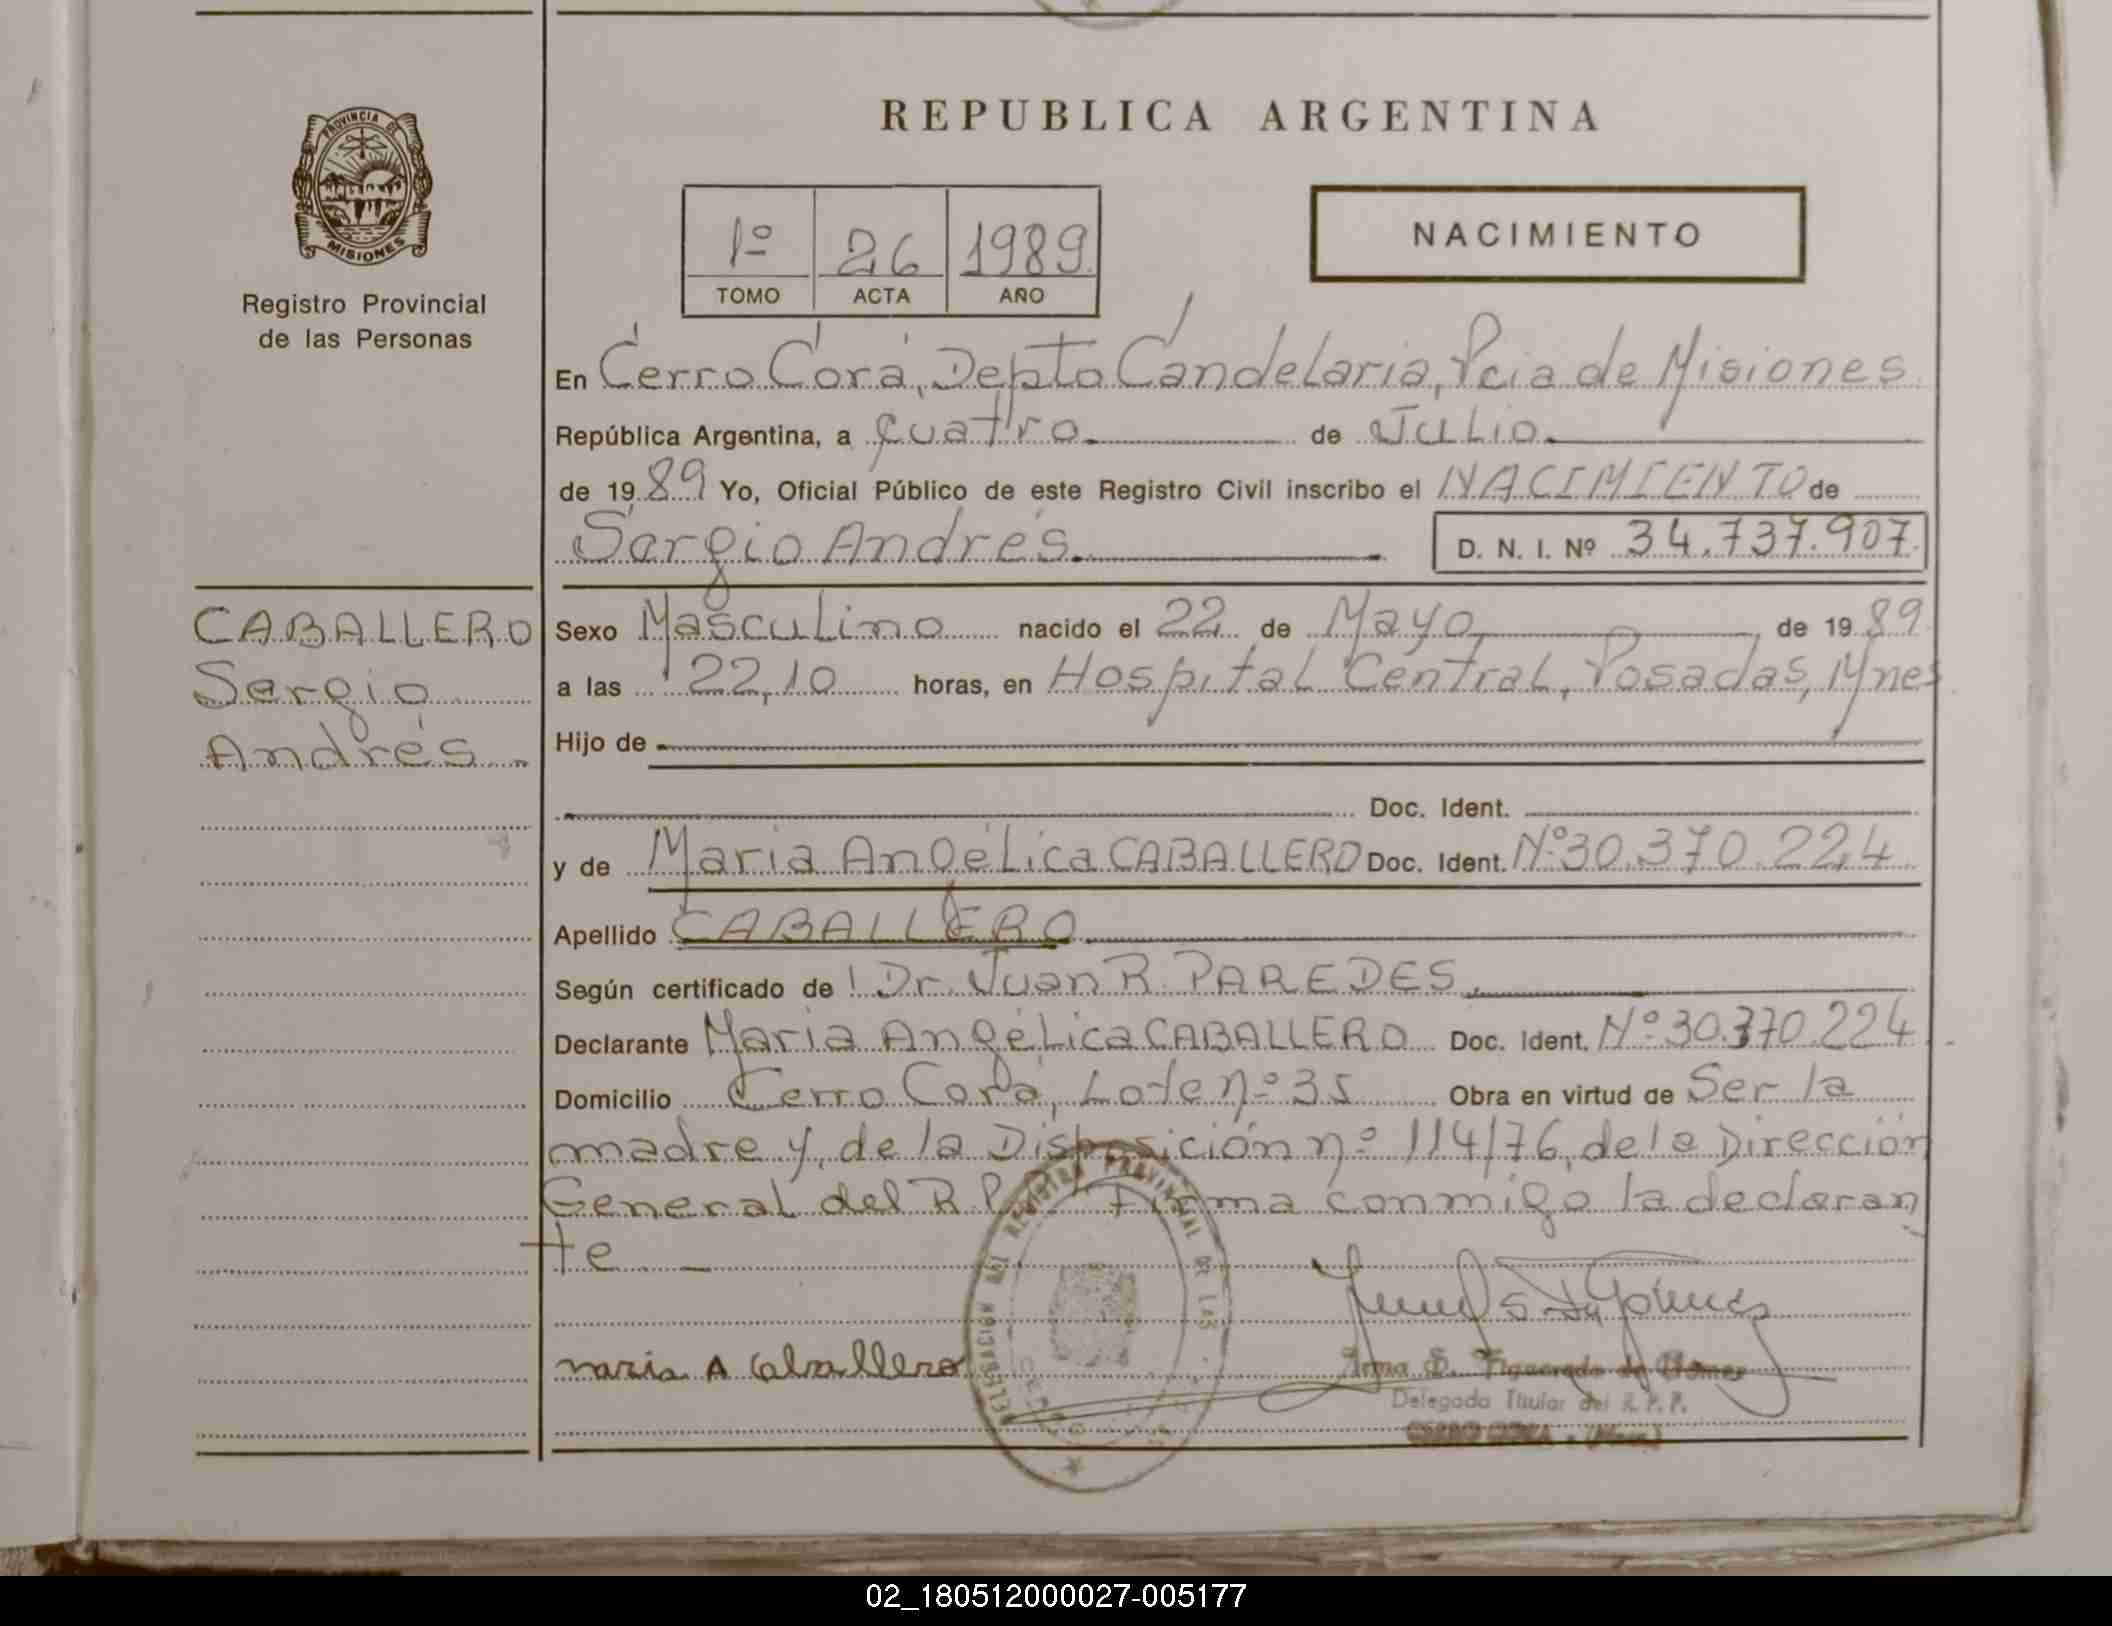 PROVINCIA DE
MISIONES
Registro Provincial
de las Personas
REPUBLICA ARGENTINA
1º 26 1989
TOMO ACTA AÑO
NACIMIENTO
En Cerro Corá, Depto Candelaria, Pcia de Misiones
República Argentina, a cuatro de Julio
de 1989 Yo, Oficial Público de este Registro Civil inscribo el NACIMIENTO de
Sergio Andrés D. N. I. Nº 34.737.907
CABALLERO
Sergio
Andrés
Sexo Masculino nacido el 22 de Mayo de 1989
a las 22,10 horas, en Hospital Central, Posadas, Mnes
Hijo de
Doc. Ident.
y de María Angélica CABALLERO Doc. Ident. Nº 30.370.224
Apellido CABALLERO
Según certificado de Dr. Juan R. PAREDES
Declarante María Angélica CABALLERO Doc. Ident. Nº 30.370.224
Domicilio Cerro Corá, Lote nº 35 Obra en virtud de Ser la
madre y, de la Disposición nº 114/76, de la Dirección
General del R.P.P. Firma conmigo la declaran
te
maria A Caballero
Irma S. Figueredo de Gomez
Delegada Titular del R.P.P.
CERRO CORA - (Mnes.)
DELEGACION DEL REGISTRO PROVINCIAL DE LAS
02_180512000027-005177